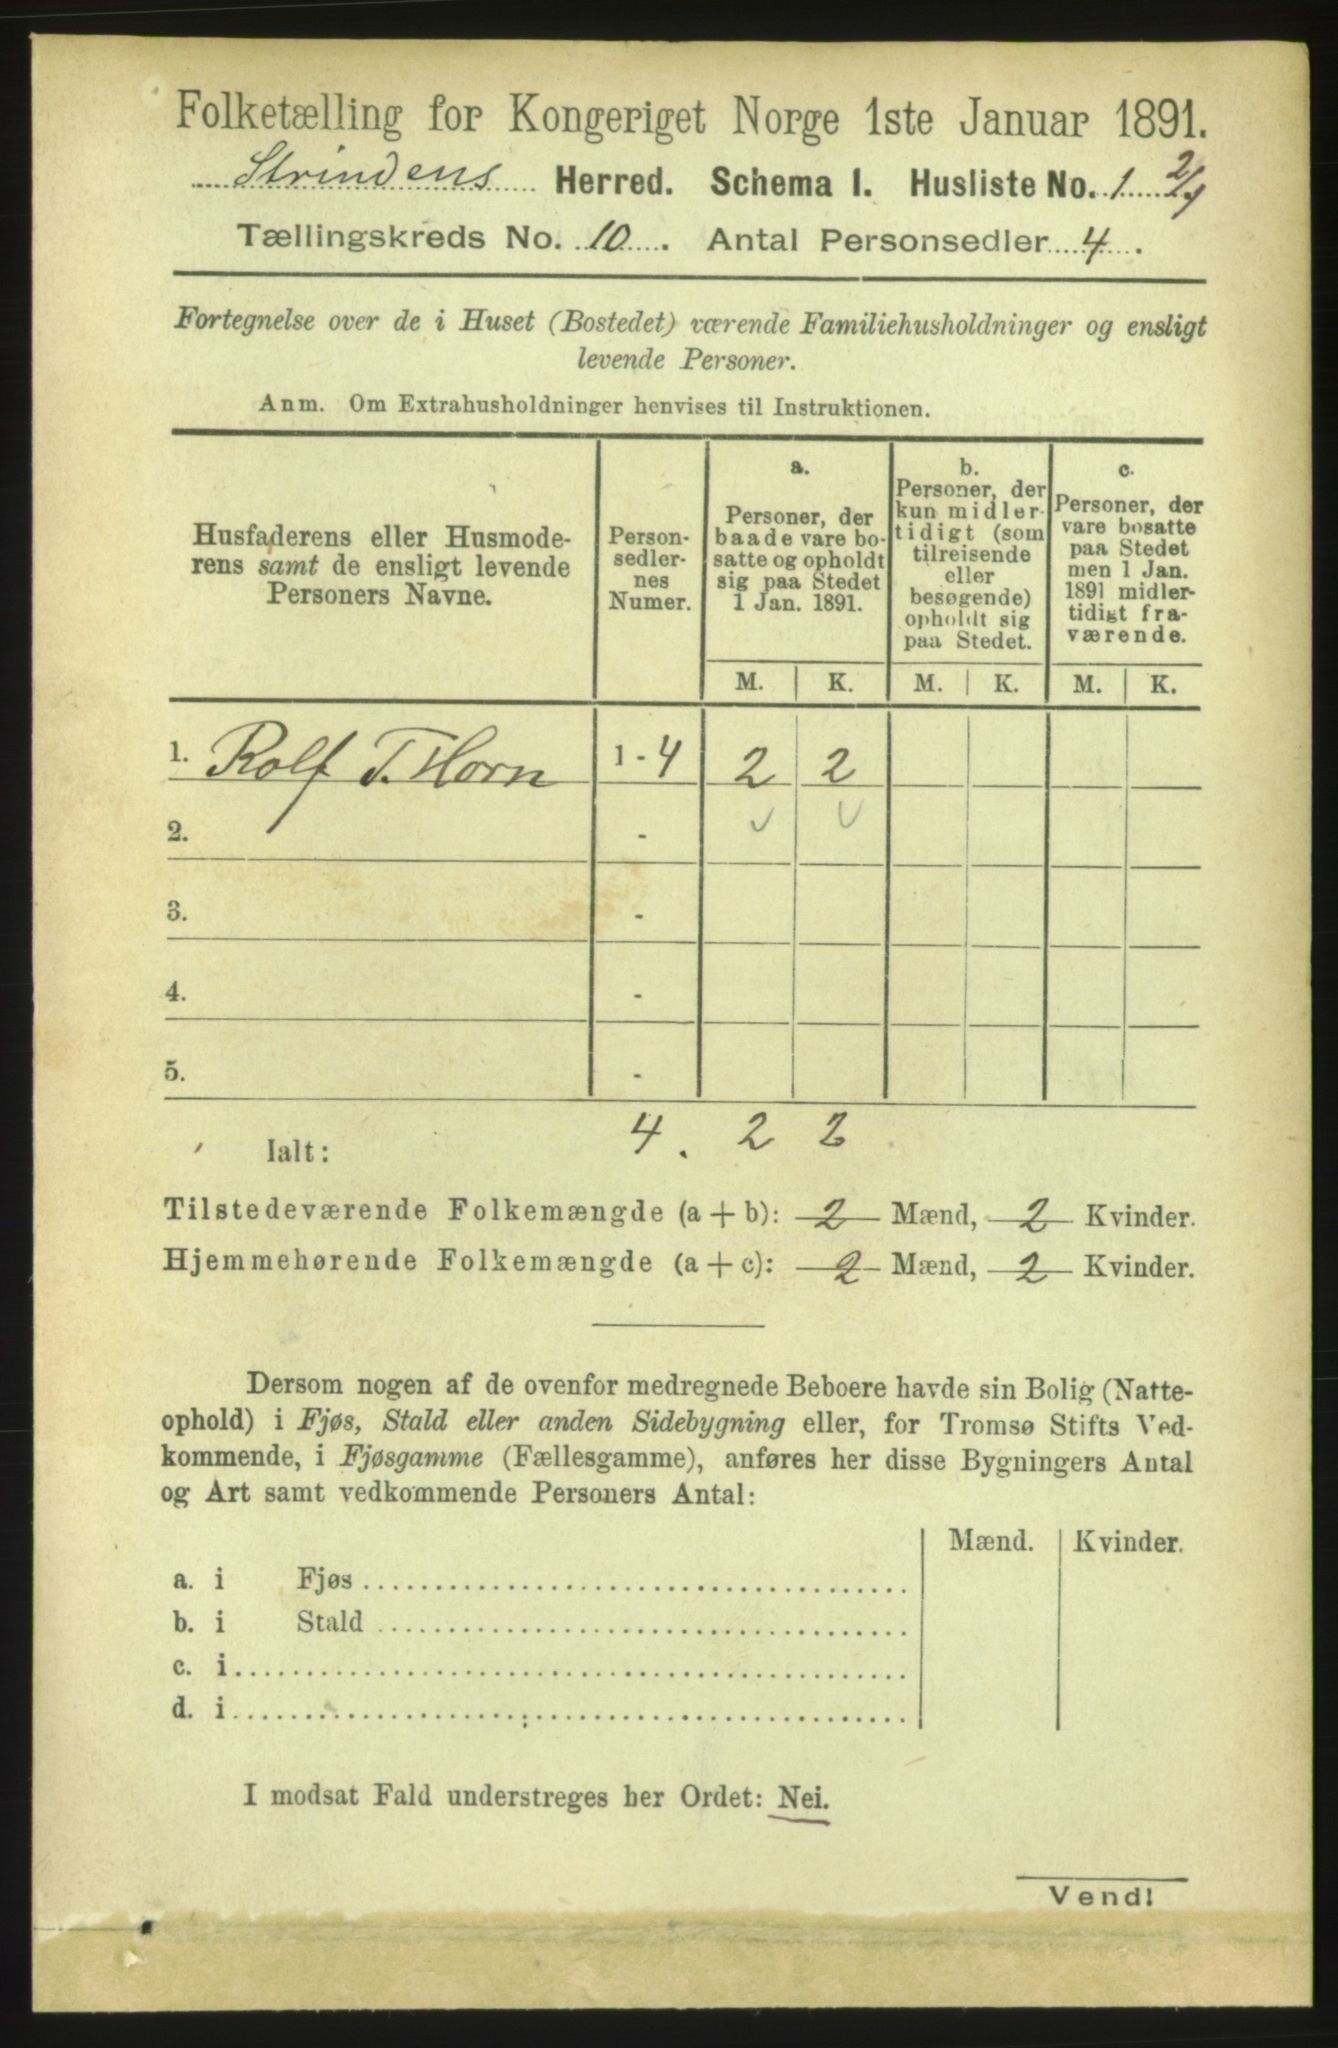 Folketælling for Kongeriget Norge 1ste Januar 1891.
Strindens Herred. Schema I. Husliste No. 1 2/1
Tællingskreds No. 10. Antal Personsedler 4.
Fortegnelse over de i Huset (Bostedet) værende Familiehusholdninger og ensligt
levende Personer.
Anm. Om Extrahusholdninger henvises til Instruktionen.
Husfaderens eller Husmode-
rens samt de ensligt levende
Personers Navne.
Person-
sedler-
nes
Numer.
a.
Personer, der
baade vare bo-
satte og opholdt
sig paa Stedet
1 Jan. 1891.
b.
Personer, der
kun midler-
tidigt (som
tilreisende
eller
besøgende)
opholdt sig
paa Stedet.
c.
Personer, der
vare bosatte
paa Stedet
men 1 Jan.
1891 midler-
tidigt fra-
værende.
M. K. M. K. M. K.
1. Rolf T. Horn 1 - 4 2 2
2. -
3. -
4. -
5. -
Ialt: 4. 2 2
Tilstedeværende Folkemængde (a + b): 2 Mænd, 2 Kvinder.
Hjemmehørende Folkemængde (a + c): 2 Mænd, 2 Kvinder.
Dersom nogen af de ovenfor medregnede Beboere havde sin Bolig (Natte-
ophold) i Fjøs, Stald eller anden Sidebygning eller, for Tromsø Stifts Ved-
kommende, i Fjøsgamme (Fællesgamme), anføres her disse Bygningers Antal
og Art samt vedkommende Personers Antal:
Mænd. Kvinder.
a. i Fjøs
b. i Stald
c. i
d. i
I modsat Fald understreges her Ordet: Nei.
Vend!